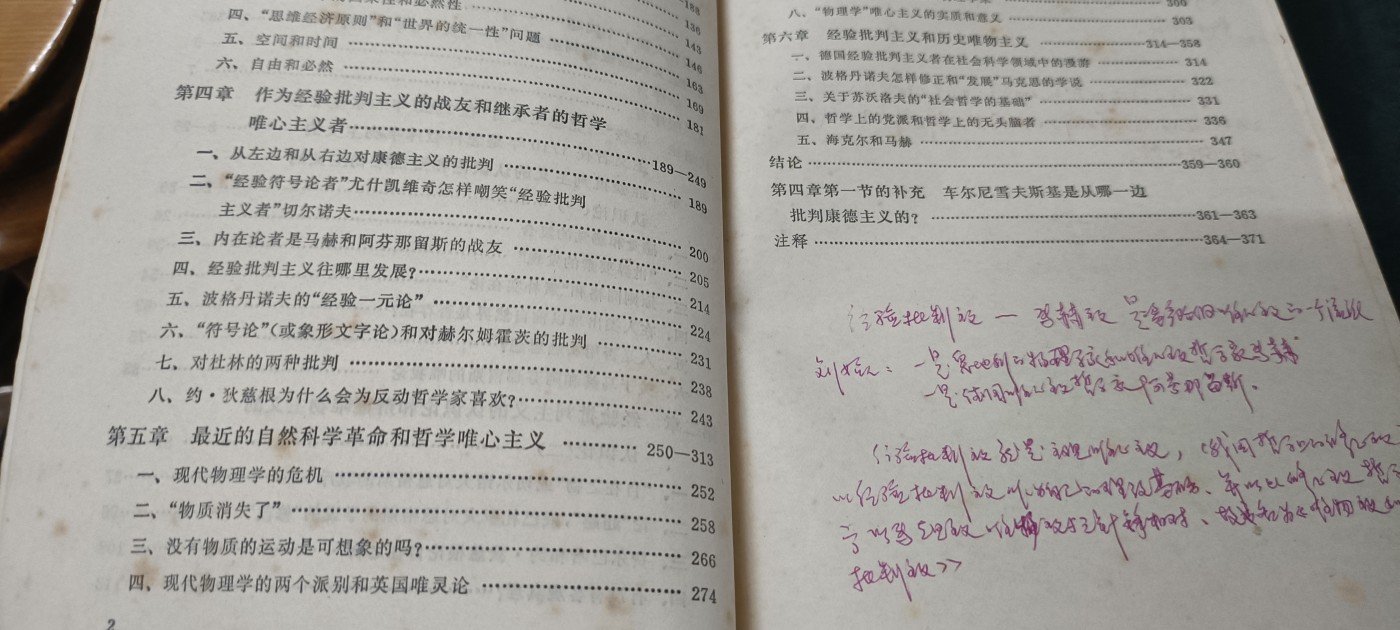 和必然性 ……… 136
四、“思维经济原则”和“世界的统一性”问题 ……… 143
五、空间和时间 ……… 146
六、自由和必然 ……… 163
169
第四章 作为经验批判主义的战友和继承者的哲学 181
唯心主义者 ……… 189—249
一、从左边和从右边对康德主义的批判 ……… 189
二、“经验符号论者”尤什凯维奇怎样嘲笑“经验批判
主义者”切尔诺夫 ……… 200
三、内在论者是马赫和阿芬那留斯的战友 ……… 205
四、经验批判主义往哪里发展? ……… 214
五、波格丹诺夫的“经验一元论” ……… 224
六、“符号论”(或象形文字论)和对赫尔姆霍茨的批判 ……… 231
七、对杜林的两种批判 ……… 238
八、约·狄慈根为什么会为反动哲学家喜欢? ……… 243
第五章 最近的自然科学革命和哲学唯心主义 ……… 250—313
一、现代物理学的危机 ……… 252
二、“物质消失了” ……… 258
三、没有物质的运动是可想象的吗? ……… 266
四、现代物理学的两个派别和英国唯灵论 ……… 274
2
300
八、“物理学”唯心主义的实质和意义 ……… 303
第六章 经验批判主义和历史唯物主义 ……… 314—358
一、德国经验批判主义者在社会科学领域中的漫游 ……… 314
二、波格丹诺夫怎样修正和“发展”马克思的学说 ……… 322
三、关于苏沃洛夫的“社会哲学的基础” ……… 331
四、哲学上的党派和哲学上的无头脑者 ……… 336
五、海克尔和马赫 ……… 347
结论 ……… 359—360
第四章第一节的补充 车尔尼雪夫斯基是从哪一边
批判康德主义的? ……… 361—363
注释 ……… 364—371
经验批判主义 — 马赫主义 是 唯心主义的一个流派
一是奥地利的物理学家和唯心主义哲学家马赫
一是德国唯心主义哲学家阿芬那留斯.
经验批判主义就是主观唯心主义,
以经验批判主义
批判主义>>